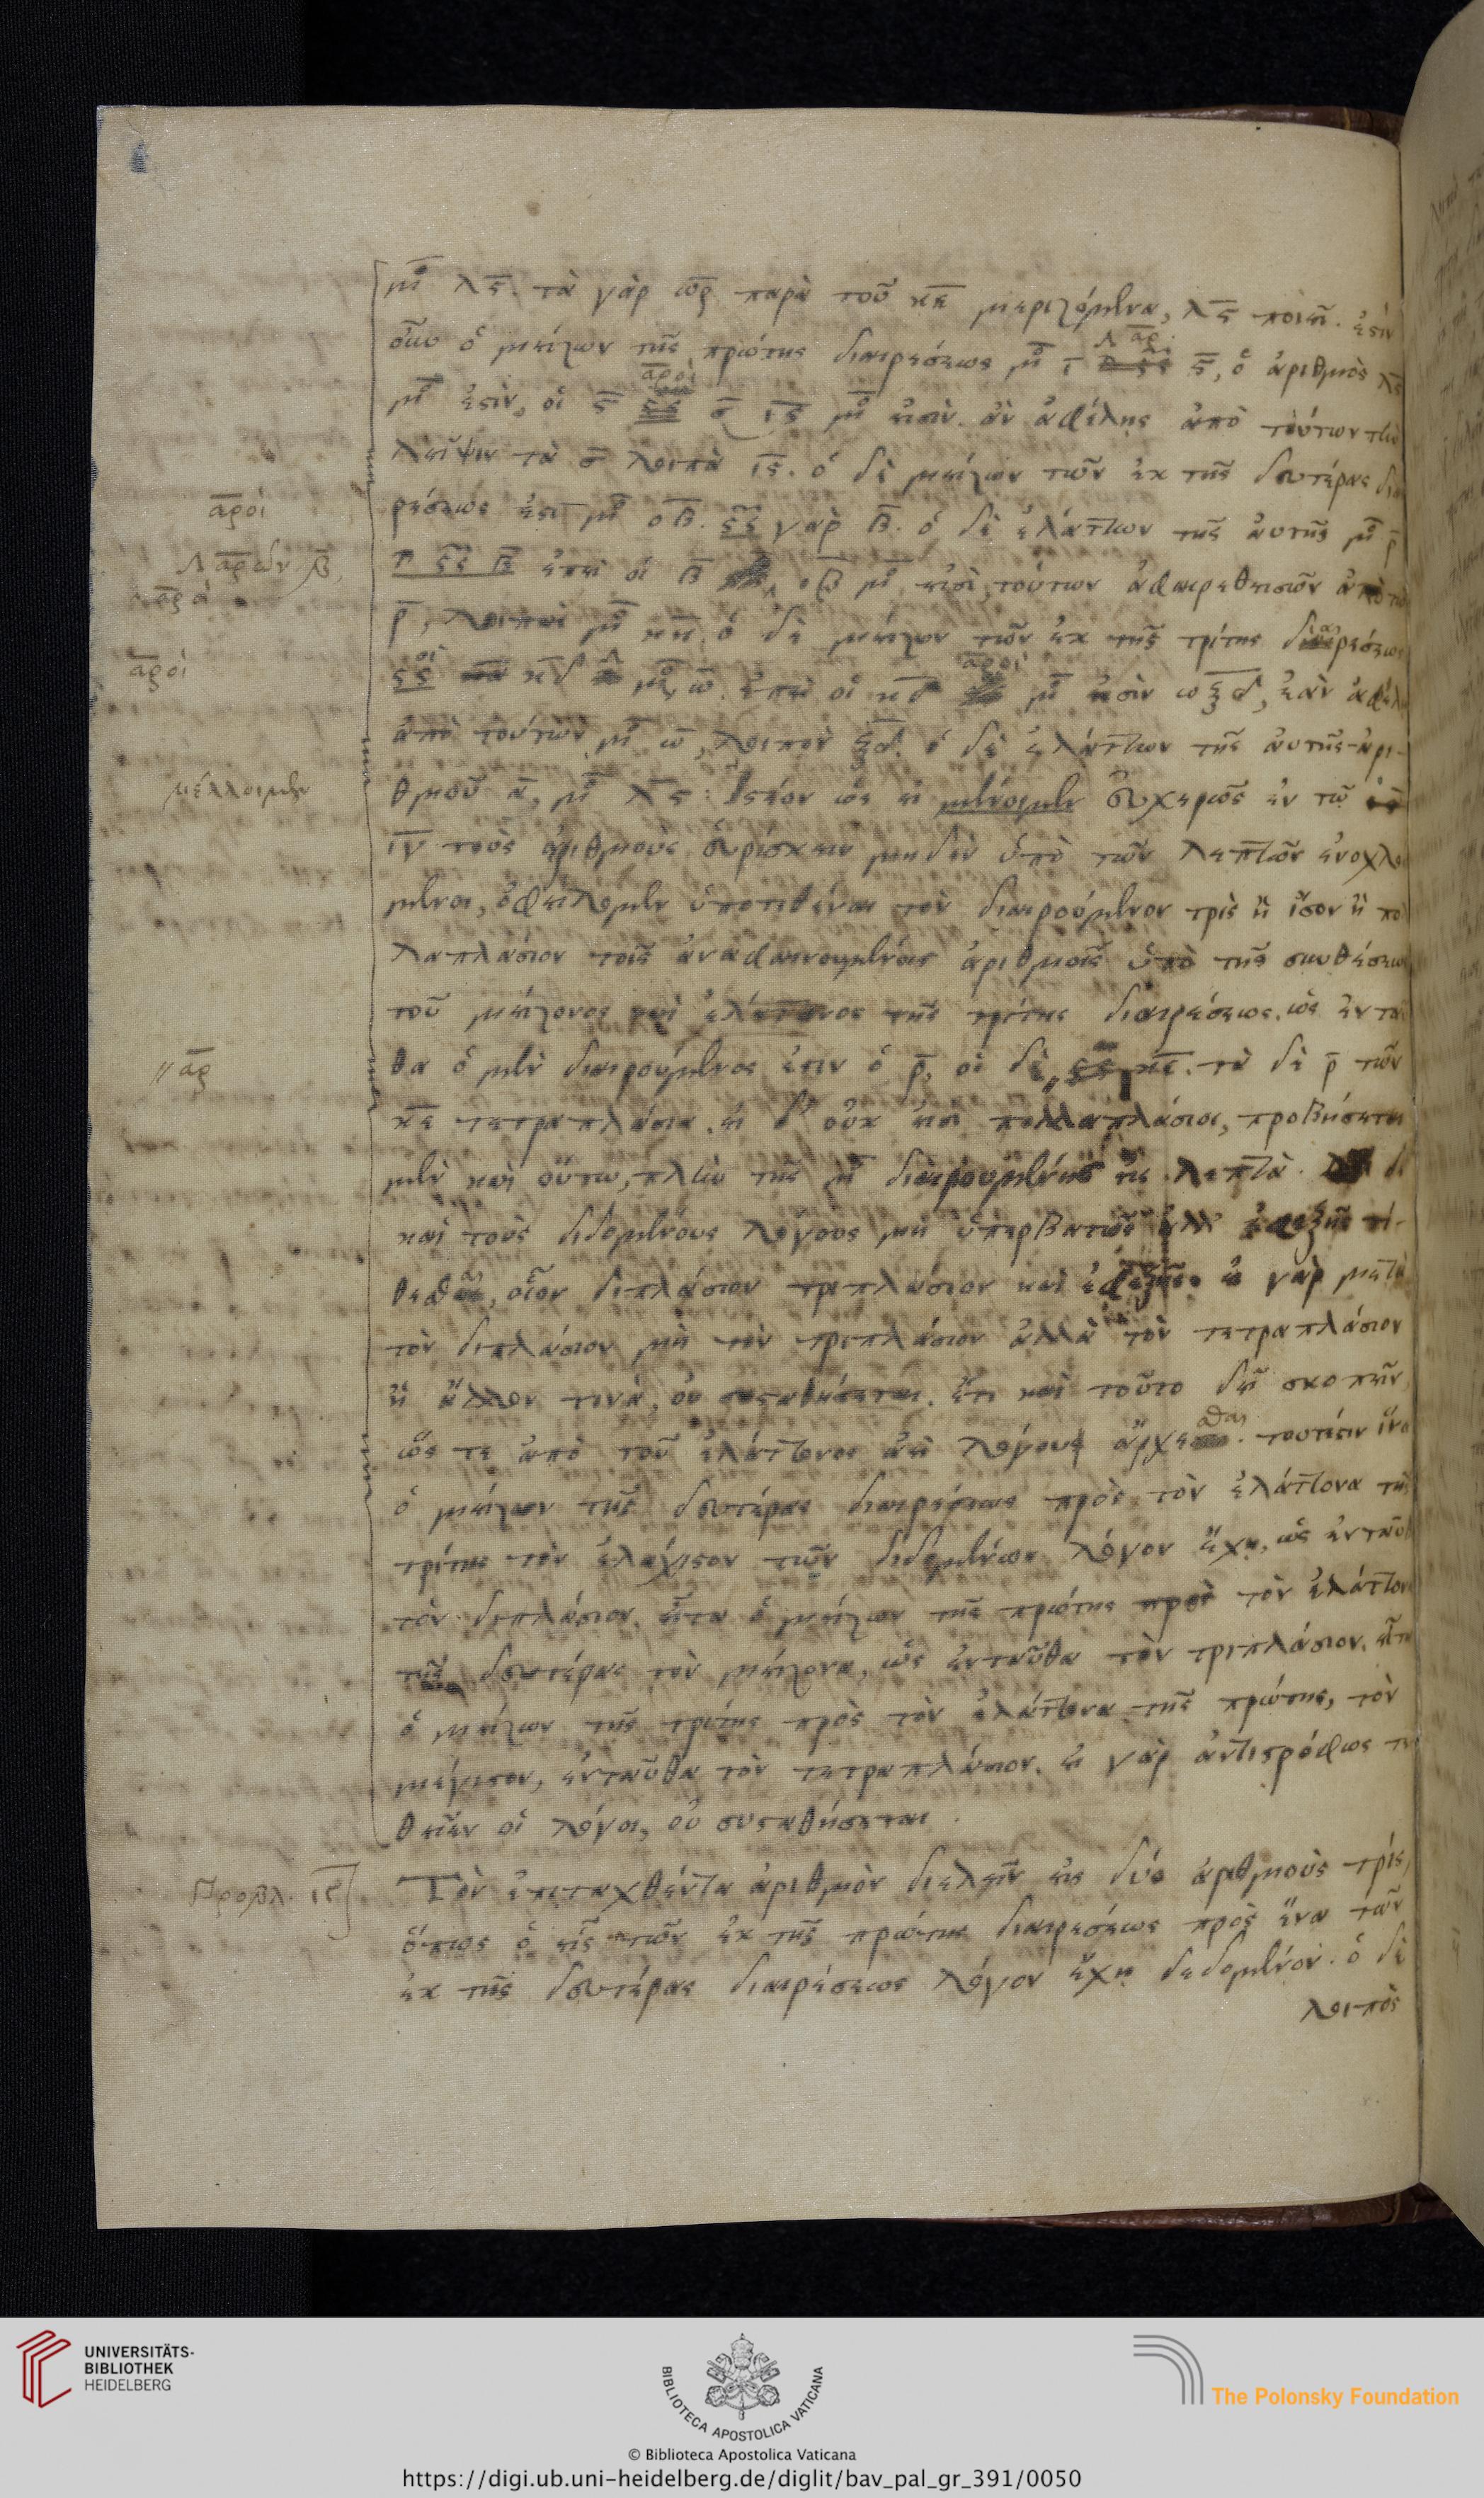 μο λϛ. τὰ γὰρ παρὰ τοῦ κε μεριζόμενα, λϛ ποιεῖ. ἐστὶν
οὖν ὁ μείζων τῆς πρώτης διαιρέσεως μο ϛ, ὁ ἀριθμὸς λϛ
μο ἐστὶν, οἱ ϛ σιϛ μο εἰσὶν. ἂν ἀφέλῃς ἀπὸ τούτων τὴν
λεῖψιν τὰ σ λοιπὰ ιϛ. ὁ δὲ μείζων τῶν ἐκ τῆς δευτέρας
ἀροί
ρέσεως ἐστὶ μο οβ. ϛϛ γὰρ β. ὁ δὲ ἐλάττων τῆς αὐτῆς μο ρ
ϛϛ β ἐπεὶ οἱ β οβ μο εἰσὶ, τούτων ἀφαιρεθεισῶν
ρ, λοιπαὶ μο κη. ὁ δὲ μείζων τῶν ἐκ τῆς τρίτης διαιρέσεως
ἀροί
κδ μο ω. ἐπεὶ οἱ κδ μο εἰσὶν ωξδ, ἐὰν
ἀπὸ τούτων μο ω, λοιπὸν ξδ. ὁ δὲ ἐλάττων τῆς αὐτῆς ἀρι-
μέλλοιμεν
θμοῦ α, μο λϛ: ἰστέον ὡς εἰ μένοιμεν εὐχερῶς ἐν τῷ
ιγ τοὺς ἀριθμοὺς εὑρίσκειν μηδὲν ὑπὸ τῶν λεπτῶν ἐνοχλού
μενοι, ὀφείλομεν ὑποτιθέναι τὸν διαιρούμενον τρὶς ἢ ἴσον ἢ πο
λαπλάσιον τοῖς ἀναφαινομένοις ἀριθμοῖς ὑπὸ τῆς συνθέσεως
τοῦ μείζονος καὶ ἐλάττονος τῆς τρίτης διαιρέσεως. ὡς ἐνταῦ
θα ὁ μὲν διαιρούμενος ἐστιν ὁ ρ, οἱ δὲ κε. τὰ δὲ ρ τῶν
κε τετραπλάσια. εἰ δ' οὐκ εἰσι πολλαπλάσιοι, προβήσεται
μὲν καὶ οὕτω, πλὴν τῆς μο διαιρουμένης εἰς λεπτὰ.
καὶ τοὺς διδομένους λόγους μὴ ὑπερβατῶς ἀλλ' ἐφεξῆς τί-
θεσθαι, οἷον διπλάσιον τριπλάσιον καὶ ἐφεξῆς. εἰ γὰρ μετὰ
τὸν διπλάσιον μὴ τὸν τριπλάσιον ἀλλὰ τὸν τετραπλάσιον
ἢ ἄλλον τινὰ, οὐ συσταθήσεται. ἔτι καὶ τοῦτο δεῖ σκοπεῖν
ὥς τε ἀπὸ τοῦ ἐλάττονος ἀεὶ λόγου ἄρχεσθαι. τουτέστιν ἵνα
ὁ μείζων τῆς δευτέρας διαιρέσεως πρὸς τὸν ἐλάττονα τῆς
τρίτης τὸν ἐλάχιστον τῶν διδομένων λόγον ἔχῃ, ὡς ἐνταῦθα
τὸν διπλάσιον. εἶτα ὁ μείζων τῆς πρώτης πρὸς τὸν ἐλάττονα
τῆς δευτέρας τὸν μείζονα, ὡς ἐνταῦθα τὸν τριπλάσιον. εἶτα
ὁ μείζων τῆς τρίτης πρὸς τὸν ἐλάττονα τῆς πρώτης, τὸν
μέγιστον, ἐνταῦθα τὸν τετραπλάσιον. εἰ γὰρ ἀντιστρόφως τε
θεῖεν οἱ λόγοι, οὐ συσταθήσεται.
Προβλ.
Τὸν ἐπιταχθέντα ἀριθμὸν διελεῖν εἰς δύο ἀριθμοὺς τρίς,
ὅπως ὁ εἷς τῶν ἐκ τῆς πρώτης διαιρέσεως πρὸς ἕνα τῶν
ἐκ τῆς δευτέρας διαιρέσεως λόγον ἔχῃ δεδομένον. ὁ δὲ
λοιπὸς
UNIVERSITÄTS-
BIBLIOTHEK
HEIDELBERG
BIBLIOTECA APOSTOLICA VATICANA
The Polonsky Foundation
© Biblioteca Apostolica Vaticana
https://digi.ub.uni-heidelberg.de/diglit/bav_pal_gr_391/0050